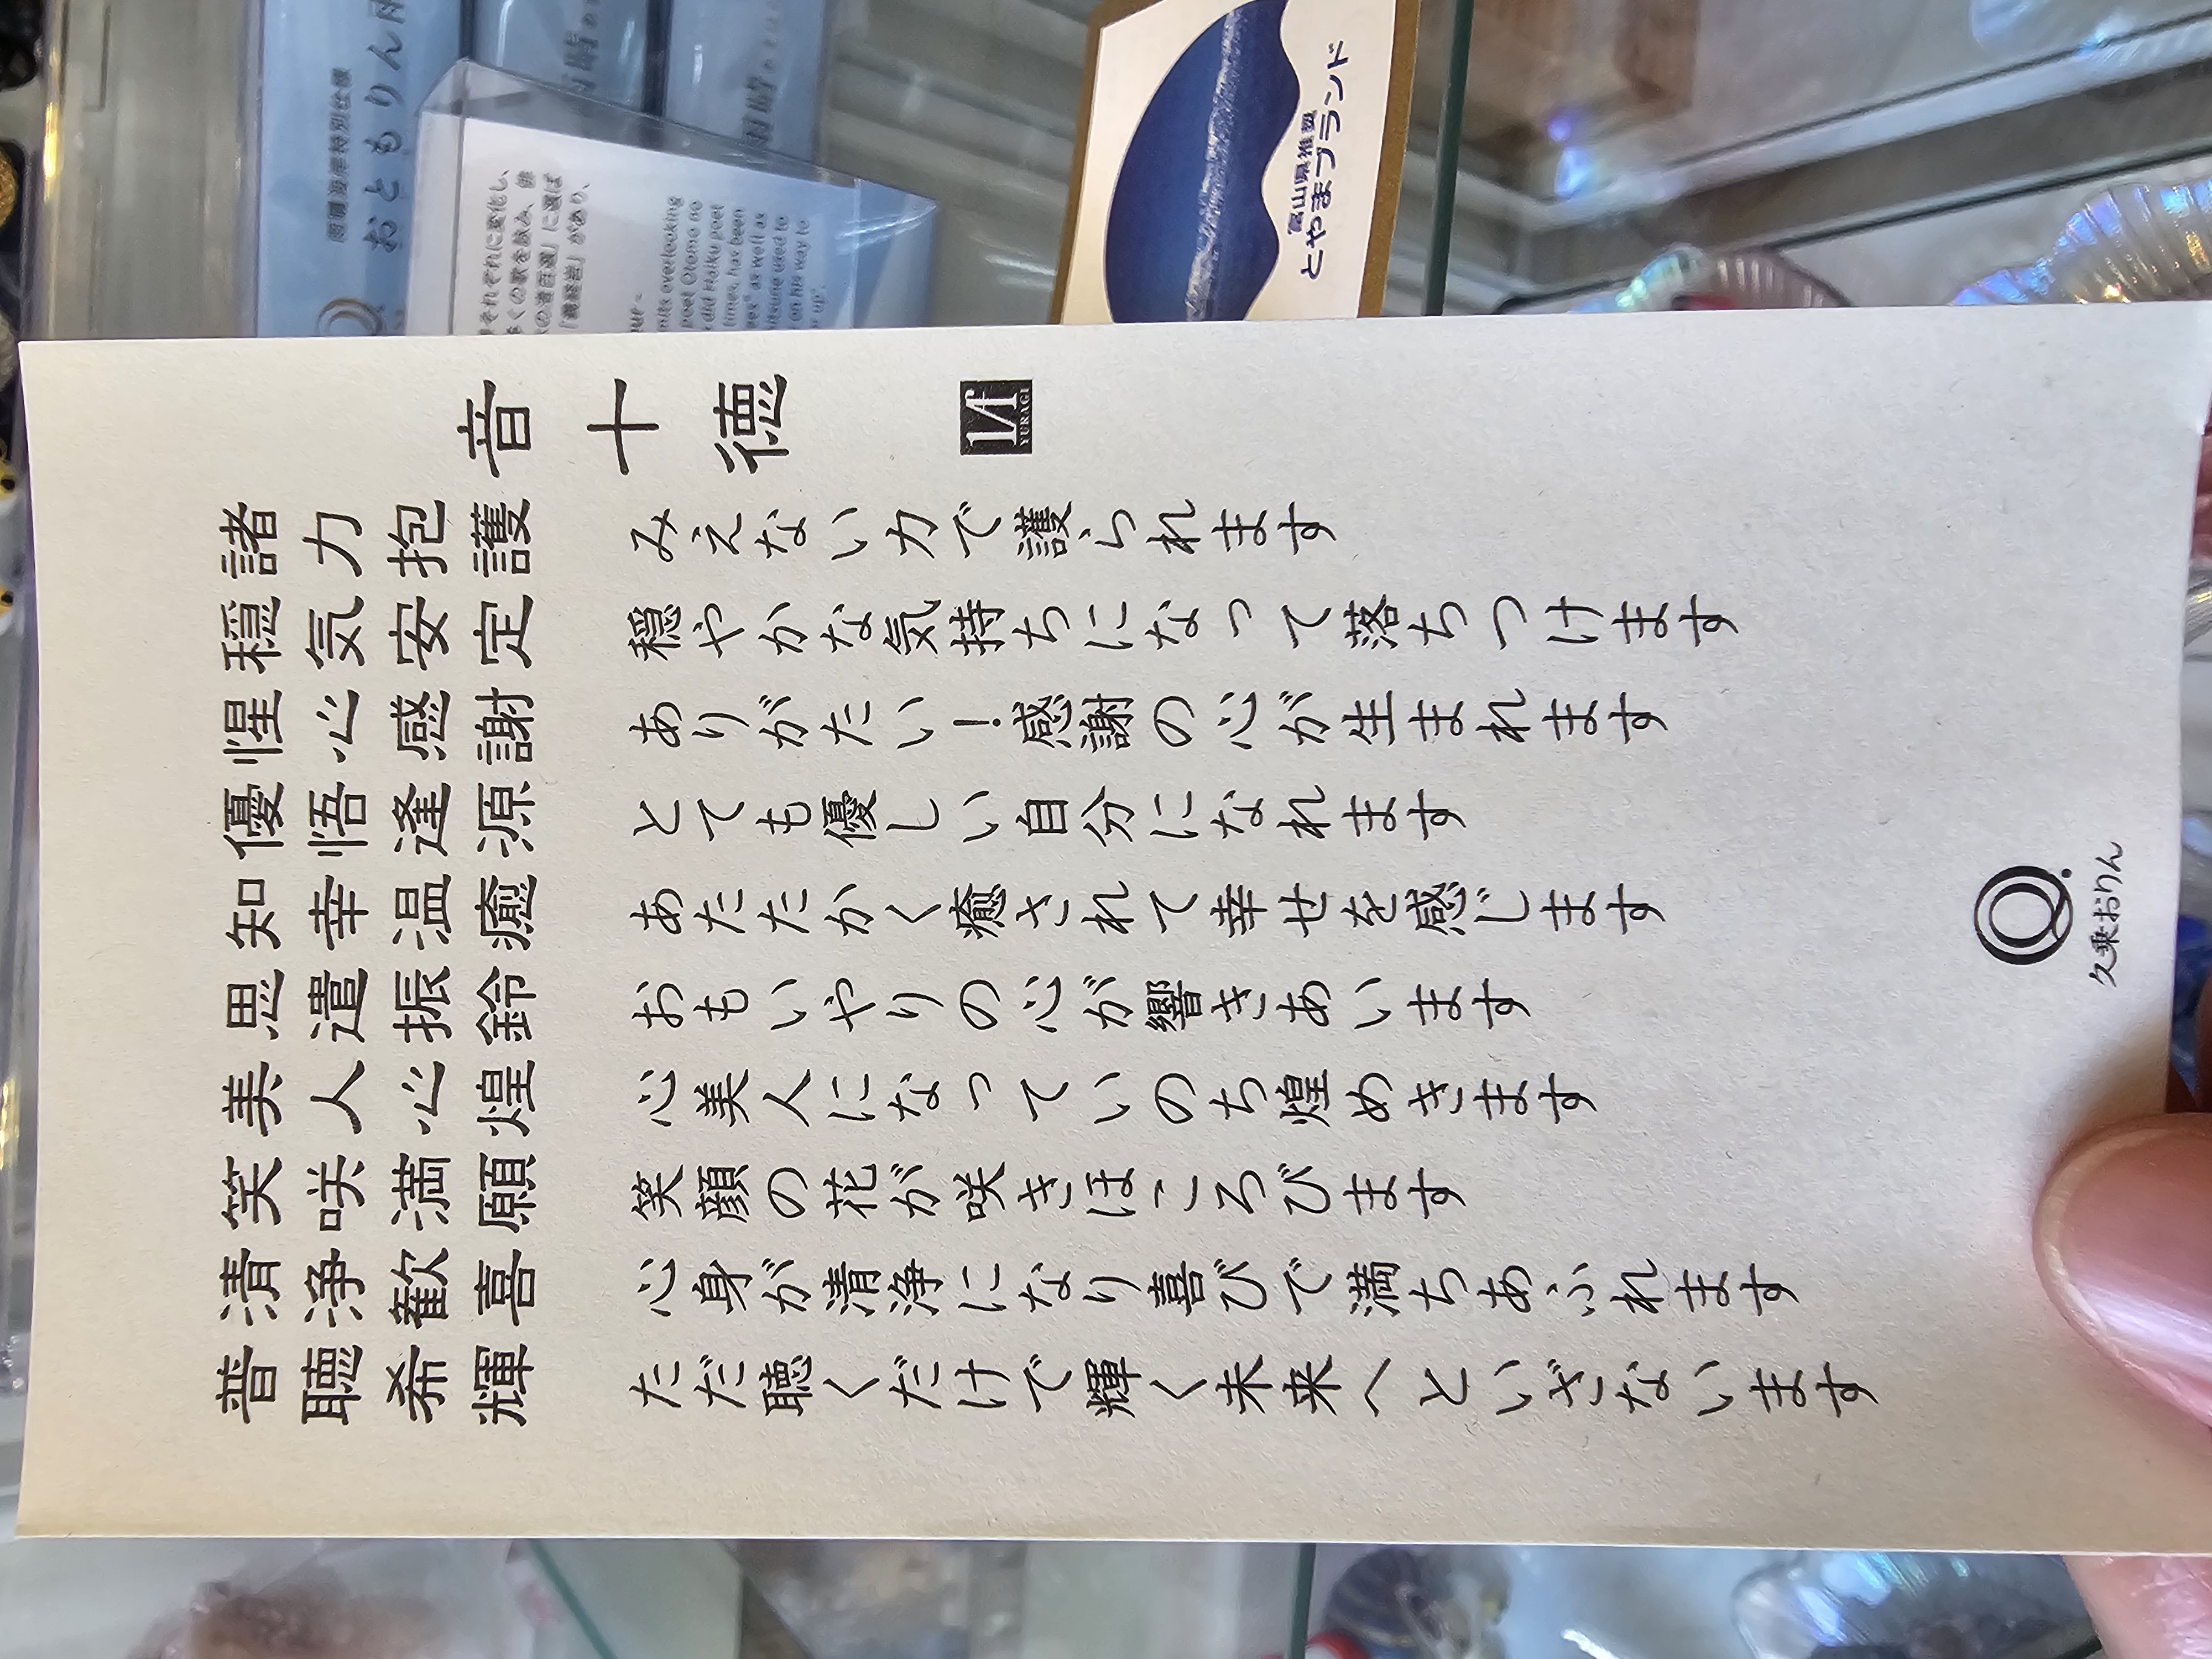 音十徳
1/f
YURAGI
諸力抱護 みえない力で護られます
穏気安定 穏やかな気持ちになって落ちつけます
惺心感謝 ありがたい!感謝の心が生まれます
優悟逢源 とても優しい自分になれます
知幸温癒 あたたかく癒されて幸せを感じます
思遣振鈴 おもいやりの心が響きあいます
美人心煌 心美人になっていのち煌めきます
笑咲満願 笑顔の花が咲きほころびます
清浄歓喜 心身が清浄になり喜びで満ちあふれます
普聴希輝 ただ聴くだけで輝く未来へといざないます
久乗おりん
富山県推奨
とやまブランド
雨晴海岸特別仕様
おともりん
それぞれに変化し、
くの歌を詠み、
」に選ば
があり、
overlooking
poet Otomo no
did Haiku poet
times, has been
as well as
used to
on his way to
up".